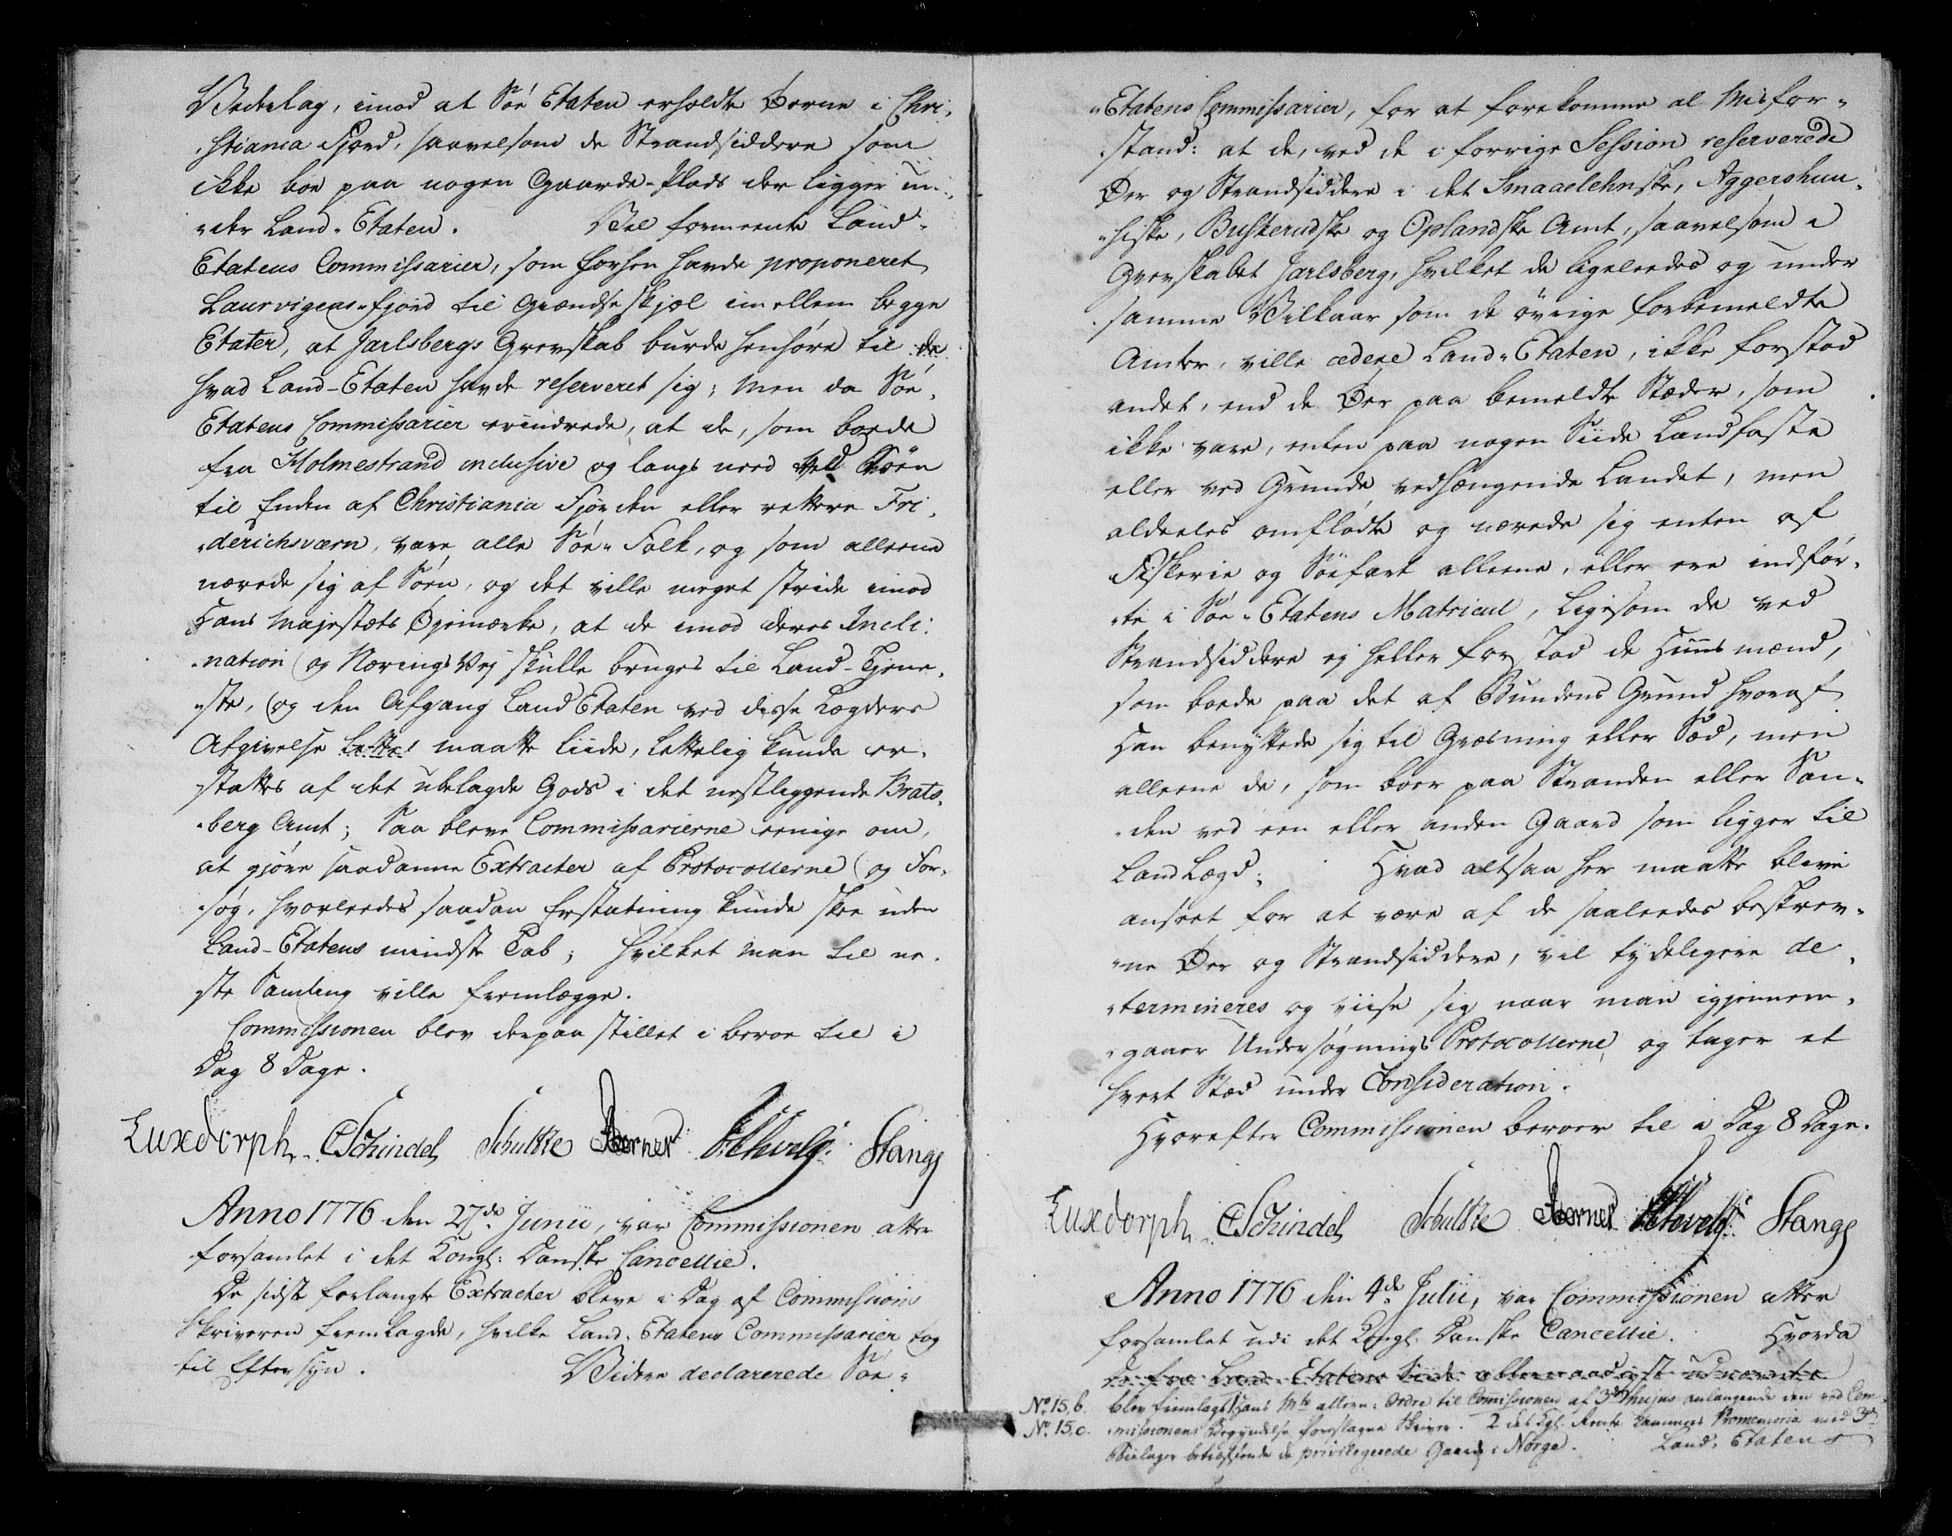 Vederlag, imod at Söe Etaten erholdte Öerne i Chri-
stiania Fjord, saavelsom de Strandsiddere som
ikke boe paa nogen Gaarde-Plads der ligger un-
der Land-Etaten. Vel formeente Land-
Etatens Commissarier, som forhen havde proponeret
Laurvigens-fjord til Grændse Skjæl imellem begge
Etater, at Jarlsbergs Grevskab burde henhöre til de
hvad Land-Etaten havde reserveret sig; Men da Söe-
Etatens Commissarier erindrede, at de, som boede
fra Holmestrand inclusive og langs need ved Söen
til Enden af Christiania Fjorden eller rettere Fri-
derichsværn, vare alle Söe-Folk, og som alleene
nærede sig af Söen, og det ville meget stride imod
Hans Majestæts Öjemærke, at de imod deres Incli-
nation og Nærings Vej skulle bruges til Land-Tjene-
ste, og den Afgang Land Etaten ved disse Lægders
Afgivelse maatte liide, lettelig kunde er-
stattes af det ubelagde Gods i det nestliggende Brats-
berg Amt; Saa bleve Commissarierne eenige om,
at gjöre saadanne Extracter af Protocollerne og For-
søg, hvorleedes saadan Erstatning kunde skee uden
Land-Etatens mindste Tab; hvilket man til ne-
ste Samling ville fremlægge.
Commissionen blev derpaa stillet i beroe til i
Dag 8 Dage.
Luxdorph CSchindel Schultze Stange
Anno 1776 den 27de Junii, var Commissionen atter
forsamlet i det Kongl: Danske Cancellie.
De sidst forlangte Extracter bleve i Dag af Commissions
Skriveren fremlagde, hvilke Land-Etatens Commissarier tog
til Eftersyn. Videre declarerede Söe-
Etatens Commissarier, for at forekomme al Misfor-
stand: at de, ved de i forrige Session reserverede
Öer og Strandsiddere i det Smaaelehnske, Aggershuu-
siske, Buskerudske og Oplandske Amt, saavelsom i
Grevskabet Jarlsberg, hvilket de ligeleedes og under
samme Vilkaar som de övrige forbemeldte
Amter, ville cedere Land-Etaten, ikke forstod
andet, end de Öer paa bemeldte Stæder, som
ikke vare, enten paa nogen Siide Landfaste
eller ved Grunde vedhængende Landet, men
aldeeles omflödte og nærede sig enten af
Fiskerie og Söefart alleene, eller ere indför-
te i Söe-Etatens Matricul, ligesom de ved
Strandsiddere ej heller forstod de Huusmænd,
som boede paa det af Bundens Grund hvoraf
Han benyttede sig til Græsning eller Sæd, men
alleene de, som boer paa Stranden eller San-
den ved een eller anden Gaard som ligger til
Land Lægd. Hvad altsaa her maatte blive
anseet for at være af de saaleedes beskrev-
ne Öer og Strandsiddere, vil tydeligere de-
termineres og viise sig naar man igjennem-
gaaer Undersögnings Protocollerne og tager et
hvert Stæd under Consideration.
Hvorefter Commissionen beroer til i Dag 8 Dage.
Luxdorph CSchindel Schultze Stange
Anno 1776 den 4de Julii, var Commissionen atter
forsamlet udi det Kongl. Danske Cancellie. Hvorda
de fra Land-Etatens Siide
No. 15, b. blev fremlagt Hans Mts allern: Ordre til Comissionen af 3de hujus anlangende den ved Com-
No. 15, c. missionens Begyndelse foreslagne Skriver. 2 det Kgl. Rente Kammers Promemoria med 3de
Bielager betreffende de privilegerede Gaarde i Norge. Land-Etatens